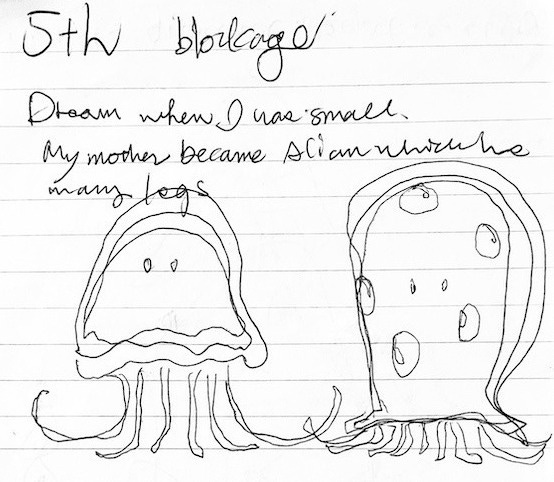 5th blockage
Dream when I was small.
My mother became Alian which has
many legs